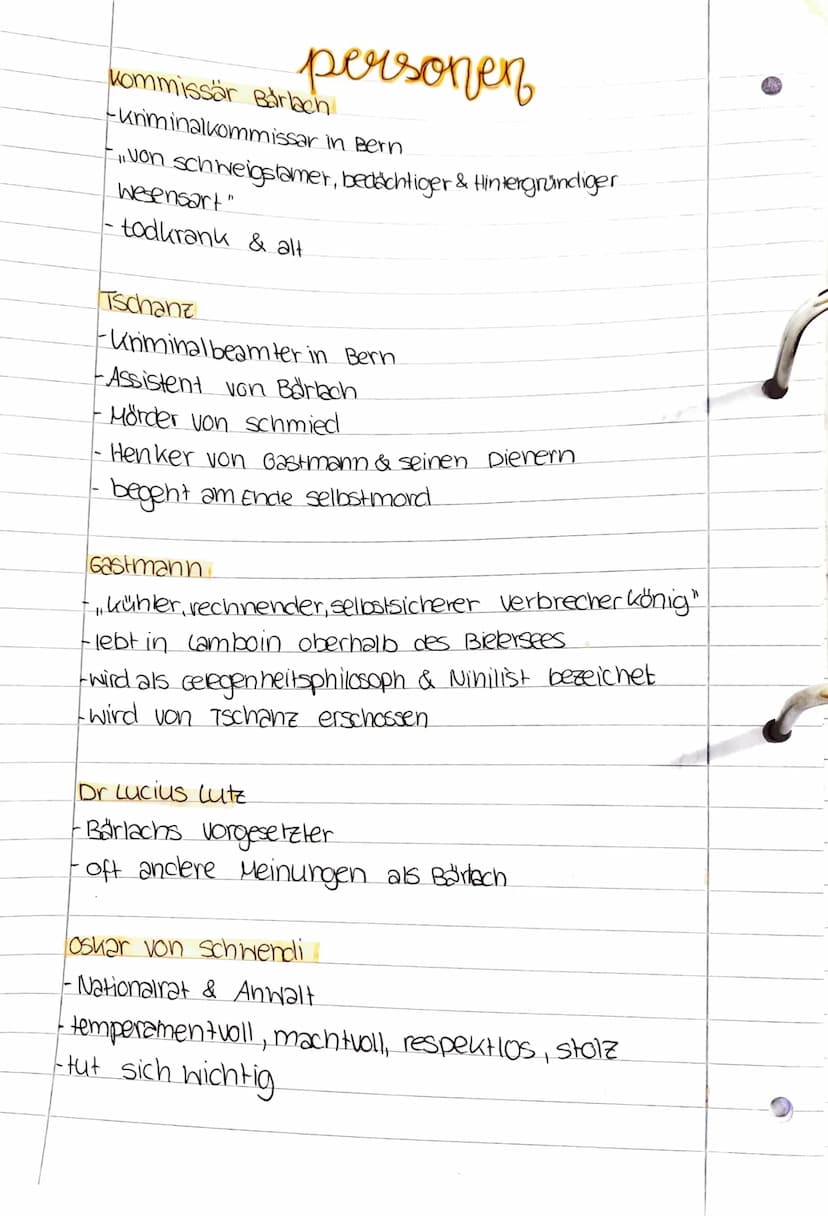 personen
Kommissär Bärlach
-Kriminalkommissar in Bern
-„von schweigsamer, bedächtiger & Hintergründiger
Wesensart"
- todkrank & alt
Tschanz
-Kriminalbeamter in Bern
-Assistent von Bärlach
- Mörder von schmied
- Henker von Gastmann & seinen Dienern
- begeht am Ende selbstmord
Gastmann
-„kühler, rechnender, selbstsicherer Verbrecherkönig"
-lebt in Lamboin oberhalb des Bielersees
-wird als Gelegenheitsphilosoph & Nihilist bezeichet
-wird von Tschanz erschossen
Dr Lucius Lutz
-Bärlachs Vorgesetzter
- oft andere Meinungen als Bärlach
Oskar von Schwendi
- Nationalrat & Anwalt
- temperamentvoll, machtvoll, respektlos, stolz
-tut sich wichtig